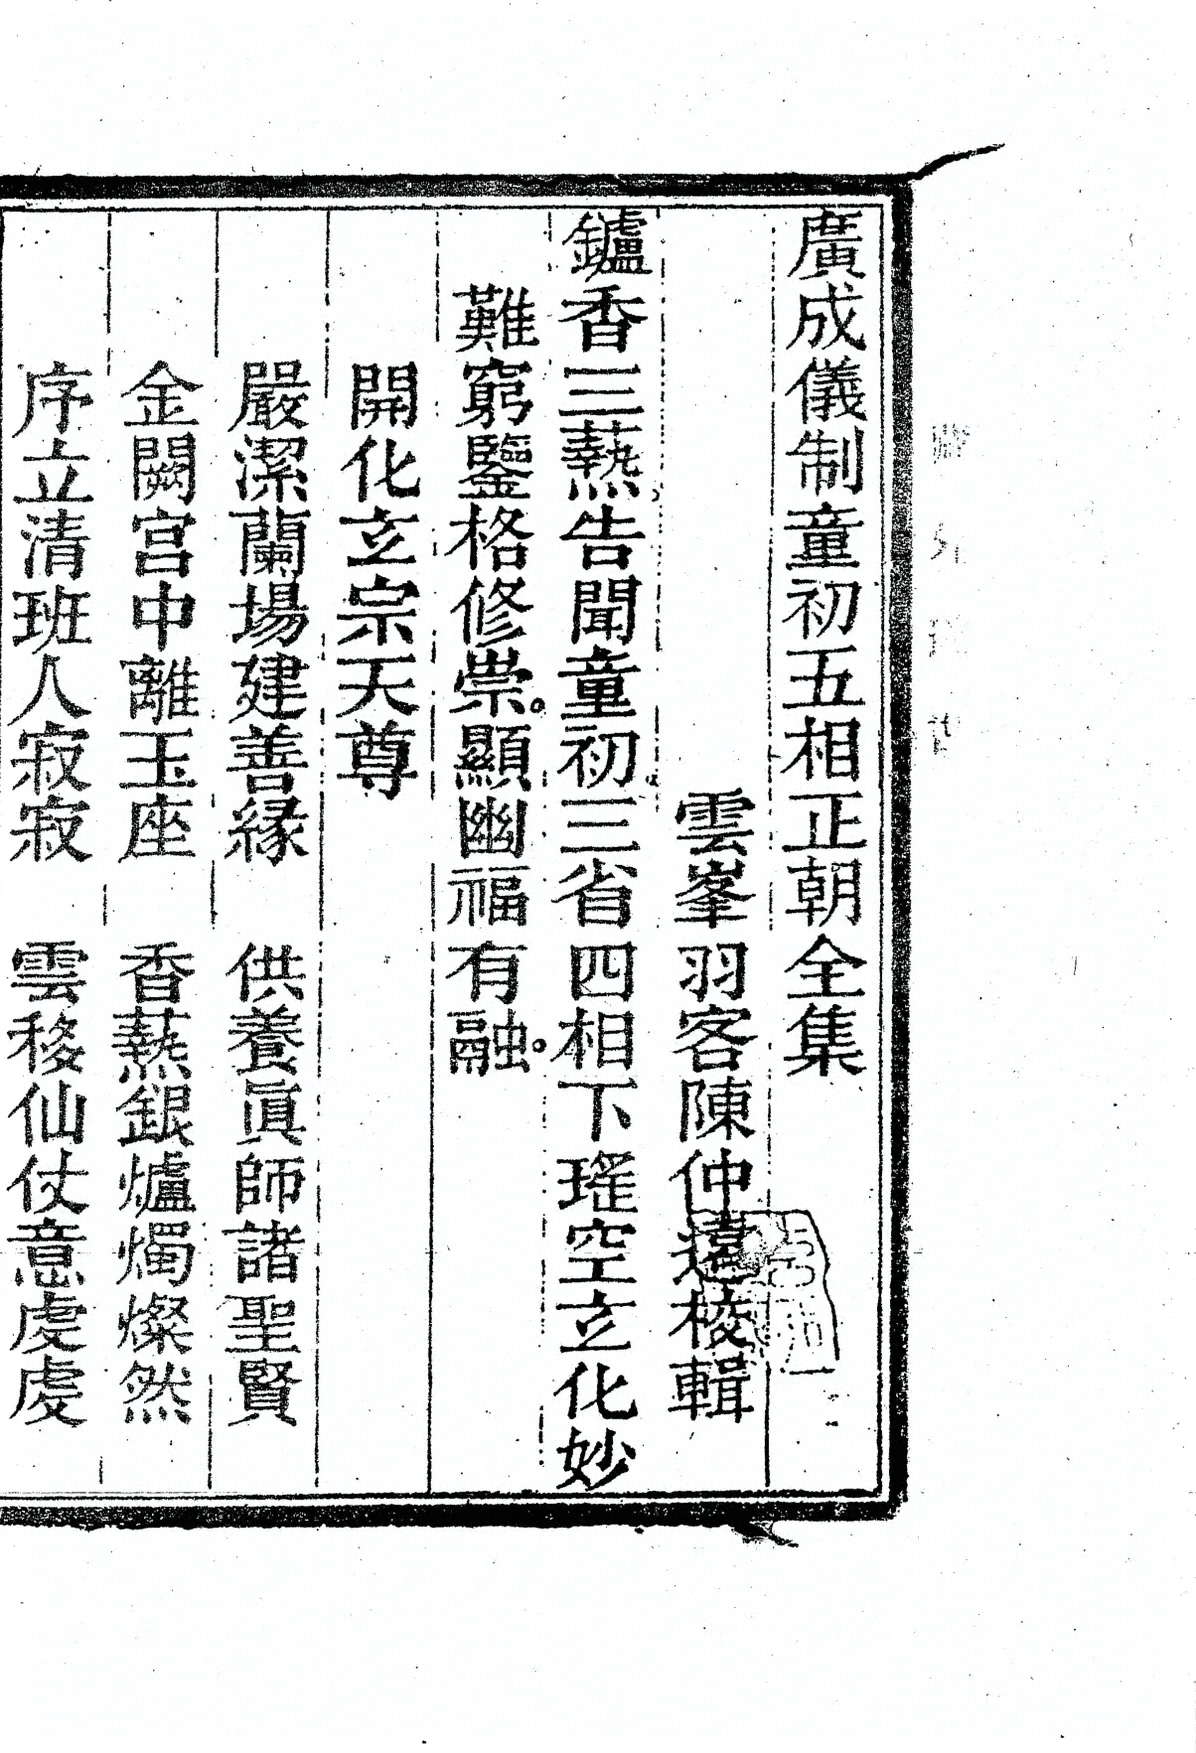 廣成儀制童初五相正朝全集
雲峯羽客陳仲遠校輯
鑪香三爇告聞童初三省四相下瑤空玄化妙
難窮鑒格修崇。顯幽福有融。
開化玄宗天尊
嚴潔蘭場建善緣　供養眞師諸聖賢
金闕宮中離玉座　香爇銀爐燭燦然
序立清班人寂寂　雲移仙仗意虔虔